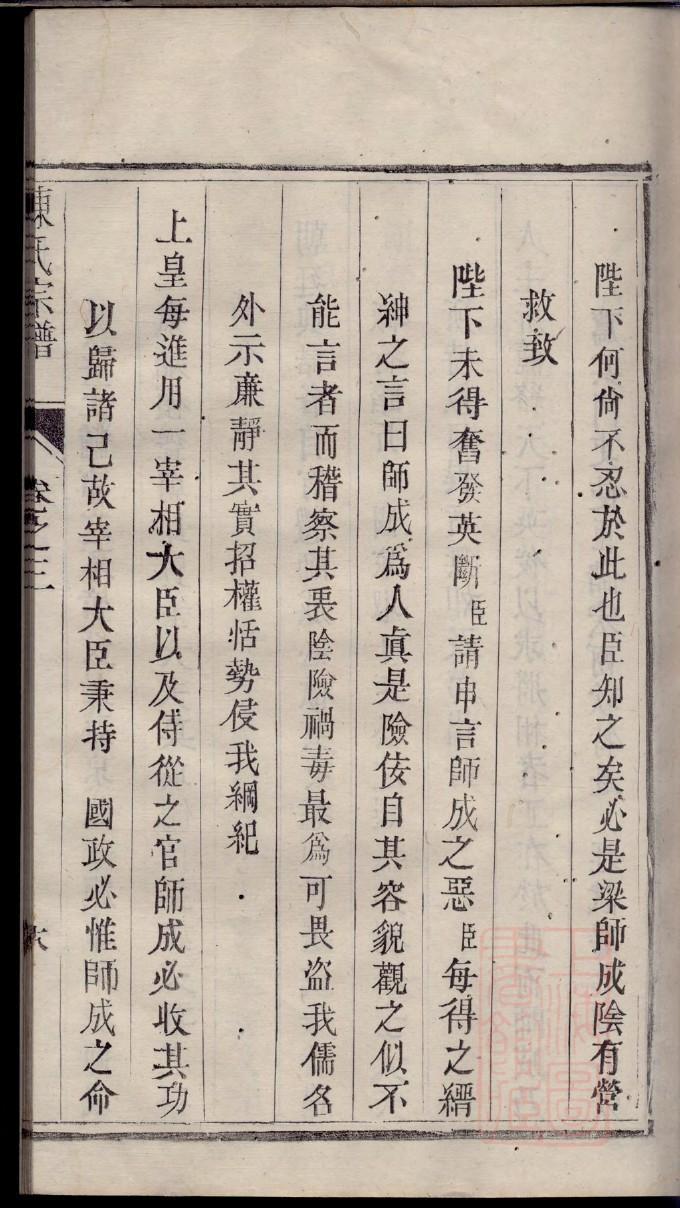 陛下何尙不忍於此也臣知之矣必是梁師成陰有營
救致
陛下未得奮發英斷臣請申言師成之惡臣每得之縉
紳之言曰師成爲人眞是險佞自其容貌觀之似不
能言者而稽察其衷陰險禍毒最爲可畏盜我儒名
外示廉靜其實招權恬勢侵我綱紀
上皇每進用一宰相大臣以及侍從之官師成必收其功
以歸諸己故宰相大臣秉持　國政必惟師成之命
陳氏宗譜　卷之三　六